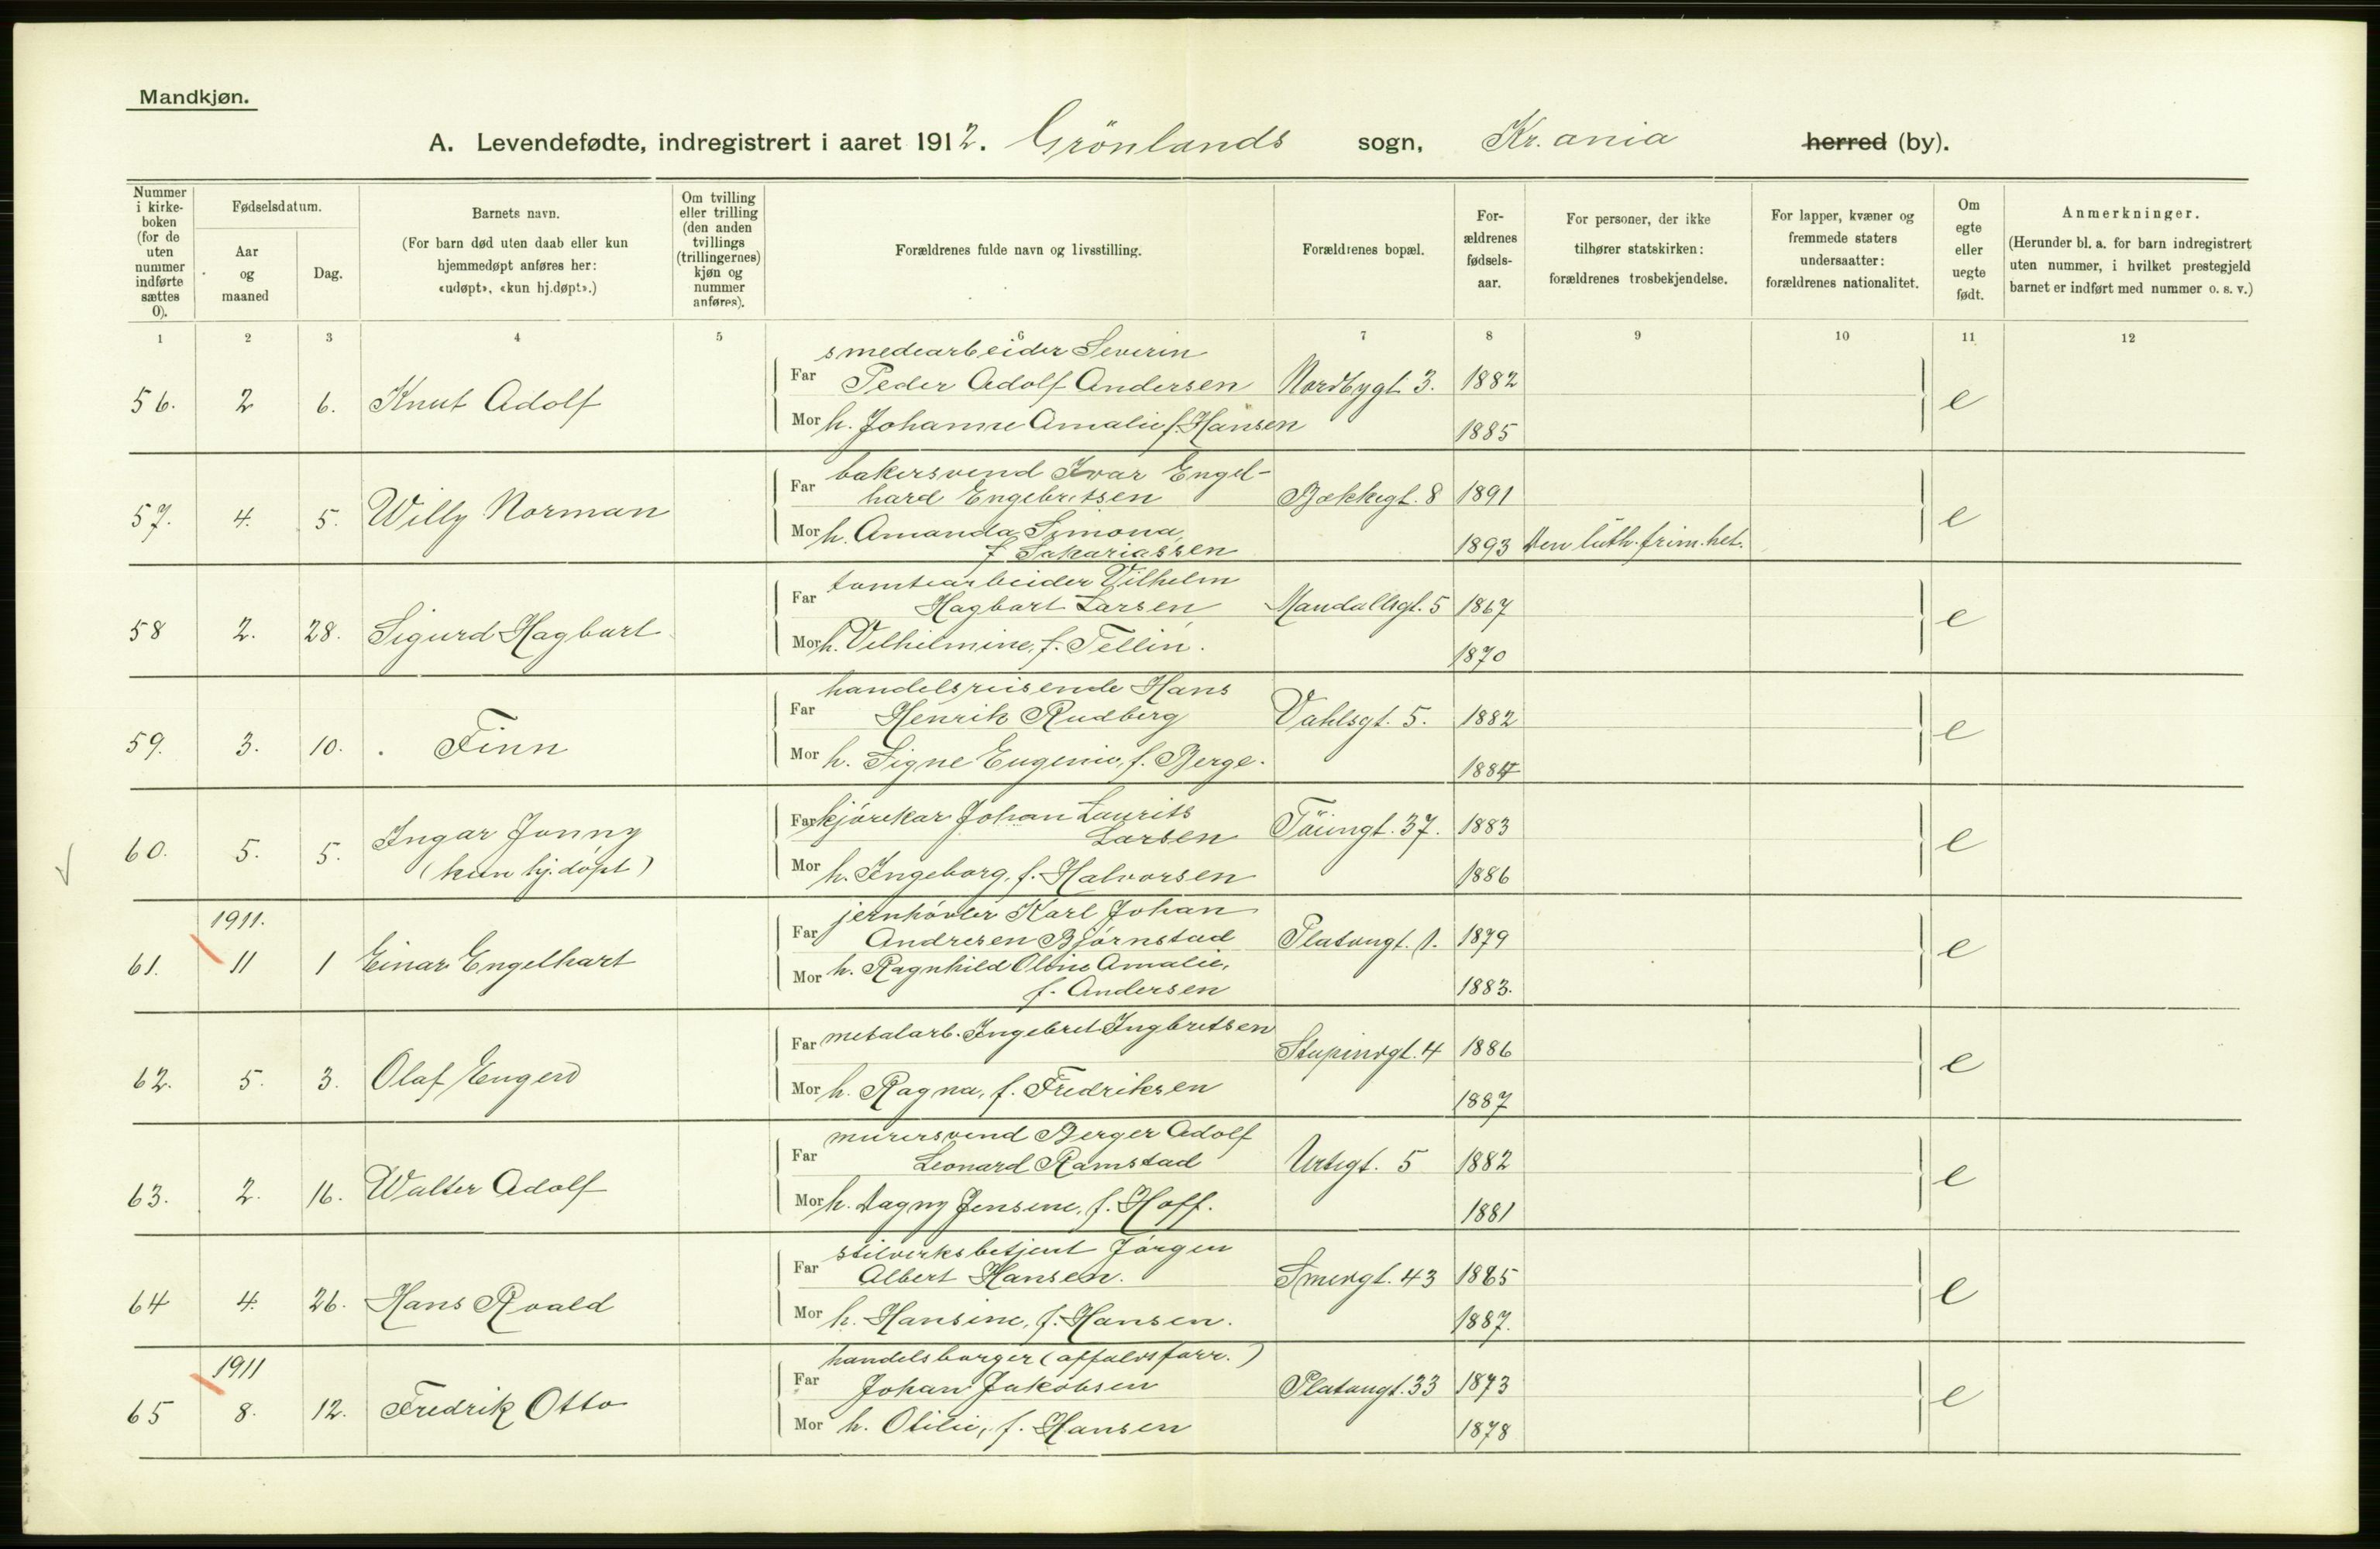 Mandkjøn.
A. Levendefødte, indregistrert i aaret 1912. Grönlands sogn, Kr.ania herred (by).
Nummer i kirke-boken (for de uten nummer indførte sættes 0).
Fødselsdatum.
Aar og maaned
Dag.
Barnets navn.
(For barn død uten daab eller kun hjemmedøpt anføres her: «udøpt», «kun hj.døpt».)
Om tvilling eller trilling (den anden tvillings (trillingernes) kjøn og nummer anføres).
Forældrenes fulde navn og livsstilling.
Forældrenes bopæl.
For-ældrenes fødsels-aar.
For personer, der ikke tilhører statskirken: forældrenes trosbekjendelse.
For lapper, kvæner og fremmede staters undersaatter: forældrenes nationalitet.
Om egte eller uegte født.
Anmerkninger.
(Herunder bl. a. for barn indregistrert uten nummer, i hvilket prestegjeld barnet er indført med nummer o. s. v.)
1 2 3 4 5 6 7 8 9 10 11 12
smedearbeider Severin
56. 2 6. Knut Adolf Far Peder Adolf Andersen Nordbygt. 3. 1882 e
Mor h. Johanne Amalie f. Hansen 1885
bakersvend Ivar Engel-
57. 4. 5. Willy Norman Far hard Engebretsen Bækkegt. 8 1891 e
Mor h. Amanda Simona,
f. Sakariassen 1893 Den luth. frim.het.
tomtearbeider Vilhelm
58 2. 28. Sigurd Hagbart Far Hagbart Larsen Mandallsgt. 5 1867 e
Mor h. Vilhelmine, f. Tellin. 1870
handelsreisende Hans
59. 3. 10. Finn Far Henrik Rudberg Vahlsgt. 5. 1882 e
Mor h. Signe Eugenie, f. Berge. 1884
Far kjörekar Johan Laurits
60. 5. 5. Ingar Jonny Larsen Töiengt. 37. 1883 e
(kun hj.döpt) Mor h. Ingeborg, f. Halvorsen 1886
1911. jernhövler Karl Johan
61. 11 1 Einar Engelhart Far Andresen Björnstad Platougt. 1. 1879 e
Mor h. Ragnhild Oline Amalie,
f. Andersen 1883.
Far metalarb. Ingebret Ingbretsen
62. 5. 3. Olaf Stupinsgt. 4 1886 e
Mor h. Ragna, f. Fredriksen 1887
murersvend Berger Adolf
63. 2. 16. Walter Adolf Far Leonard Ramstad Urtegt. 5 1882 e
Mor h. Dagny Jensine, f. Hoff. 1881
betjent Jörgen
64 4. 26. Hans Roald Far Albert Hansen. Smergt. 43 1885 e
Mor h. Hansine, f. Hansen. 1887.
1911 handelsborger (affaldsforr.)
65 8. 12. Fredrik Otto Far Johan Jakobsen Platougt. 33 1873 e
Mor h. Otilie, f. Hansen 1878